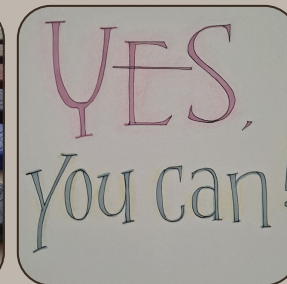 YES,
You can!